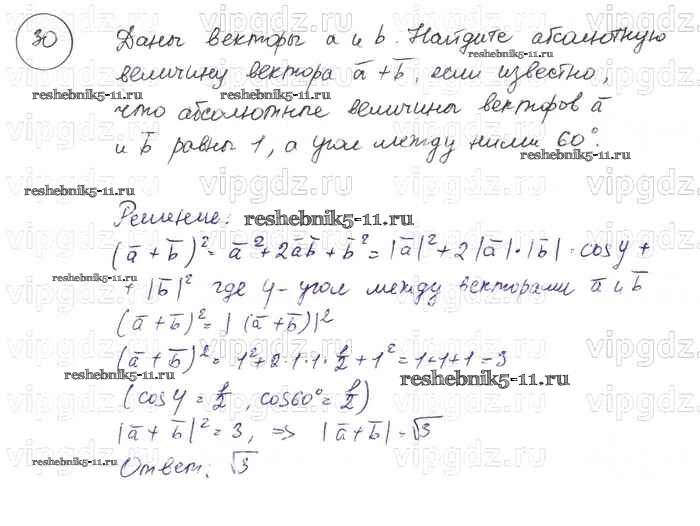 30 Даны векторы a и b. Найдите абсолютную
величину вектора a̅ + b̅, если известно,
что абсолютные величины векторов a̅
и b̅ равны 1, а угол между ними 60°.
Решение:
(a̅ + b̅)² = a̅² + 2a̅b̅ + b̅² = |a̅|² + 2|a̅|·|b̅|·cosφ +
+ |b̅|² где φ - угол между векторами a̅ и b̅
(a̅ + b̅)² = |(a̅ + b̅)|²
(a̅ + b̅)² = 1² + 2·1·1·1/2 + 1² = 1+1+1 = 3
(cosφ = 1/2, cos60° = 1/2)
|a̅ + b̅|² = 3, => |a̅ + b̅| = √3
Ответ: √3
vipgdz.ru
reshebnik5-11.ru